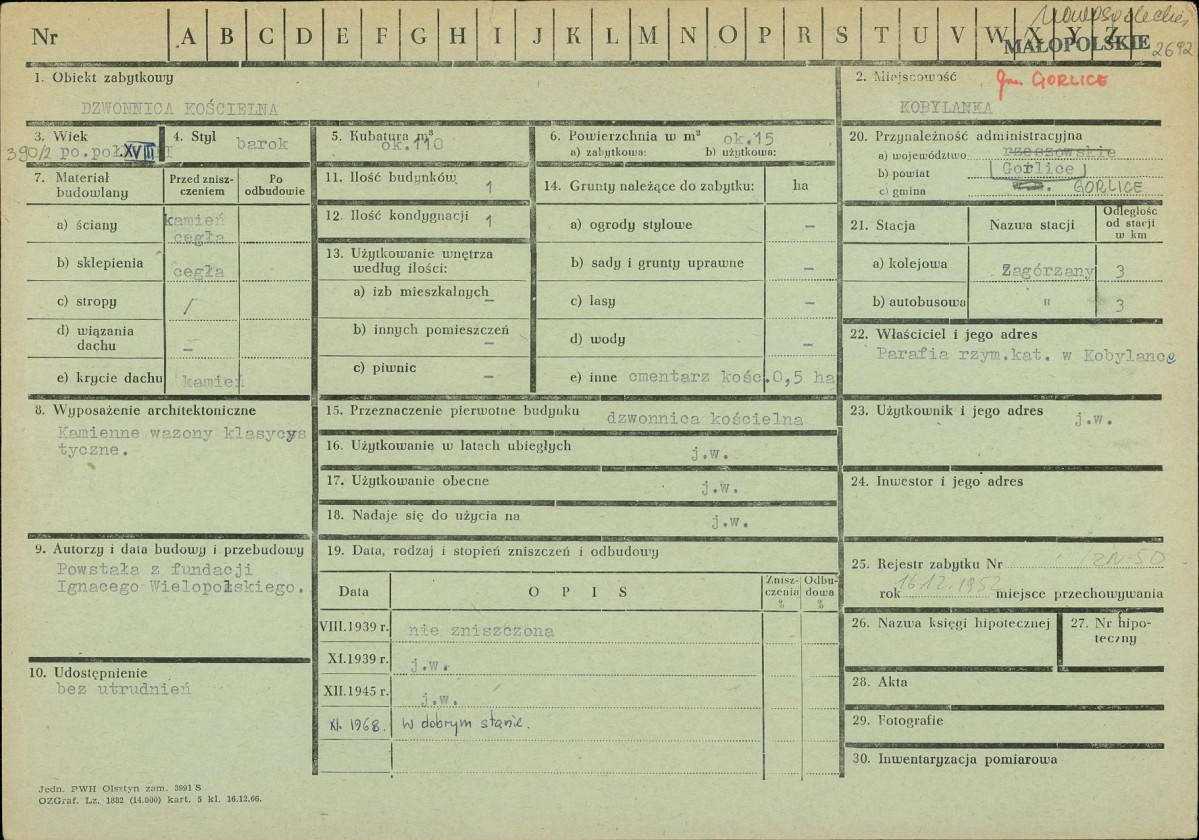 Nowosądeckie
Nr A B C D E F G H I J K L M N O P R S T U V W X Y Z
MAŁOPOLSKIE 2692
1. Obiekt zabytkowy
DZWONNICA KOŚCIELNA
2. Miejscowość gm. GORLICE
KOBYLANKA
3. Wiek
390/2 po.poł.XVIII
4. Styl
barok
5. Kubatura m³
ok.110
6. Powierzchnia w m² ok.15
a) zabytkowa: b) użytkowa:
7. Materiał budowlany
Przed znisz-
czeniem
Po
odbudowie
a) ściany kamień
cegła
b) sklepienia cegła
c) stropy /
d) wiązania
dachu –
e) krycie dachu kamień
8. Wyposażenie architektoniczne
Kamienne wazony klasycys
tyczne.
9. Autorzy i data budowy i przebudowy
Powstała z fundacji
Ignacego Wielopolskiego.
10. Udostępnienie
bez utrudnień
11. Ilość budynków 1
12. Ilość kondygnacji 1
13. Użytkowanie wnętrza
według ilości:
a) izb mieszkalnych –
b) innych pomieszczeń –
c) piwnic –
14. Grunty należące do zabytku: ha
a) ogrody stylowe –
b) sady i grunty uprawne –
c) lasy –
d) wody –
e) inne cmentarz kośc.0,5 ha
15. Przeznaczenie pierwotne budynku dzwonnica kościelna
16. Użytkowanie w latach ubiegłych j.w.
17. Użytkowanie obecne j.w.
18. Nadaje się do użycia na j.w.
19. Data, rodzaj i stopień zniszczeń i odbudowy
Data O P I S Znisz-
czenia
% Odbu-
dowa
%
VIII.1939 r. nie zniszczona
XI.1939 r. j.w.
XII.1945 r. j.w.
XI. 1968. w dobrym stanie.
20. Przynależność administracyjna
a) województwo rzeszowskie
b) powiat Gorlice
c) gmina GORLICE
21. Stacja Nazwa stacji Odległość
od stacji
w km
a) kolejowa Zagórzany 3
b) autobusowa " 3
22. Właściciel i jego adres
Parafia rzym.kat. w Kobylance
23. Użytkownik i jego adres
j.w.
24. Inwestor i jego adres
25. Rejestr zabytku Nr
rok 16.12.1952 miejsce przechowywania
26. Nazwa księgi hipotecznej
27. Nr hipo-
teczny
28. Akta
29. Fotografie
30. Inwentaryzacja pomiarowa
Jedn. PWH Olsztyn zam. 3991 S
OZGraf. Lz. 1882 (14.000) kart. 5 kl. 16.12.66.